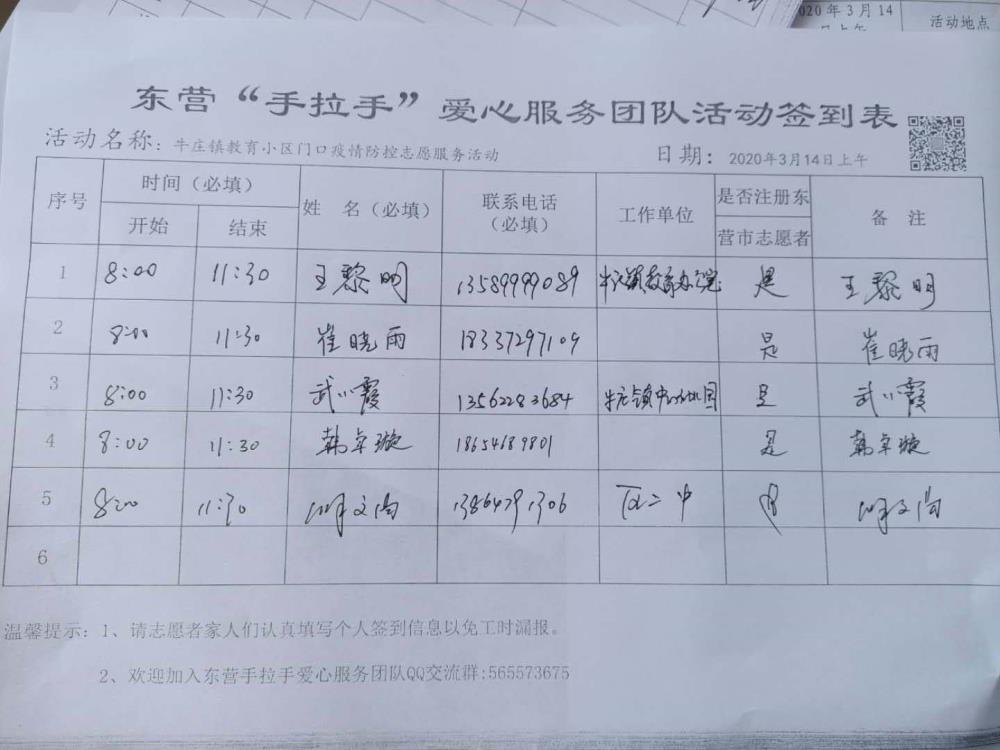 2020年3月14
日上午
活动地点
东营“手拉手”爱心服务团队活动签到表
活动名称：牛庄镇教育小区门口疫情防控志愿服务活动 日期：2020年3月14日上午
序号 时间（必填） 姓 名（必填） 联系电话（必填） 工作单位 是否注册东营市志愿者 备 注
开始 结束
1 8:00 11:30 王黎明 13589999089 牛庄镇教育办 是 王黎明
2 8:00 11:30 崔晓雨 18337297109 是 崔晓雨
3 8:00 11:30 武小霞 13562283684 牛庄镇中心幼儿园 是 武小霞
4 8:00 11:30 韩卓璇 18654689801 是 韩卓璇
5 8:00 11:30 文尚 13864791306 二中 是 文尚
6
温馨提示：1、请志愿者家人们认真填写个人签到信息以免工时漏报。
2、欢迎加入东营手拉手爱心服务团队QQ交流群:565573675